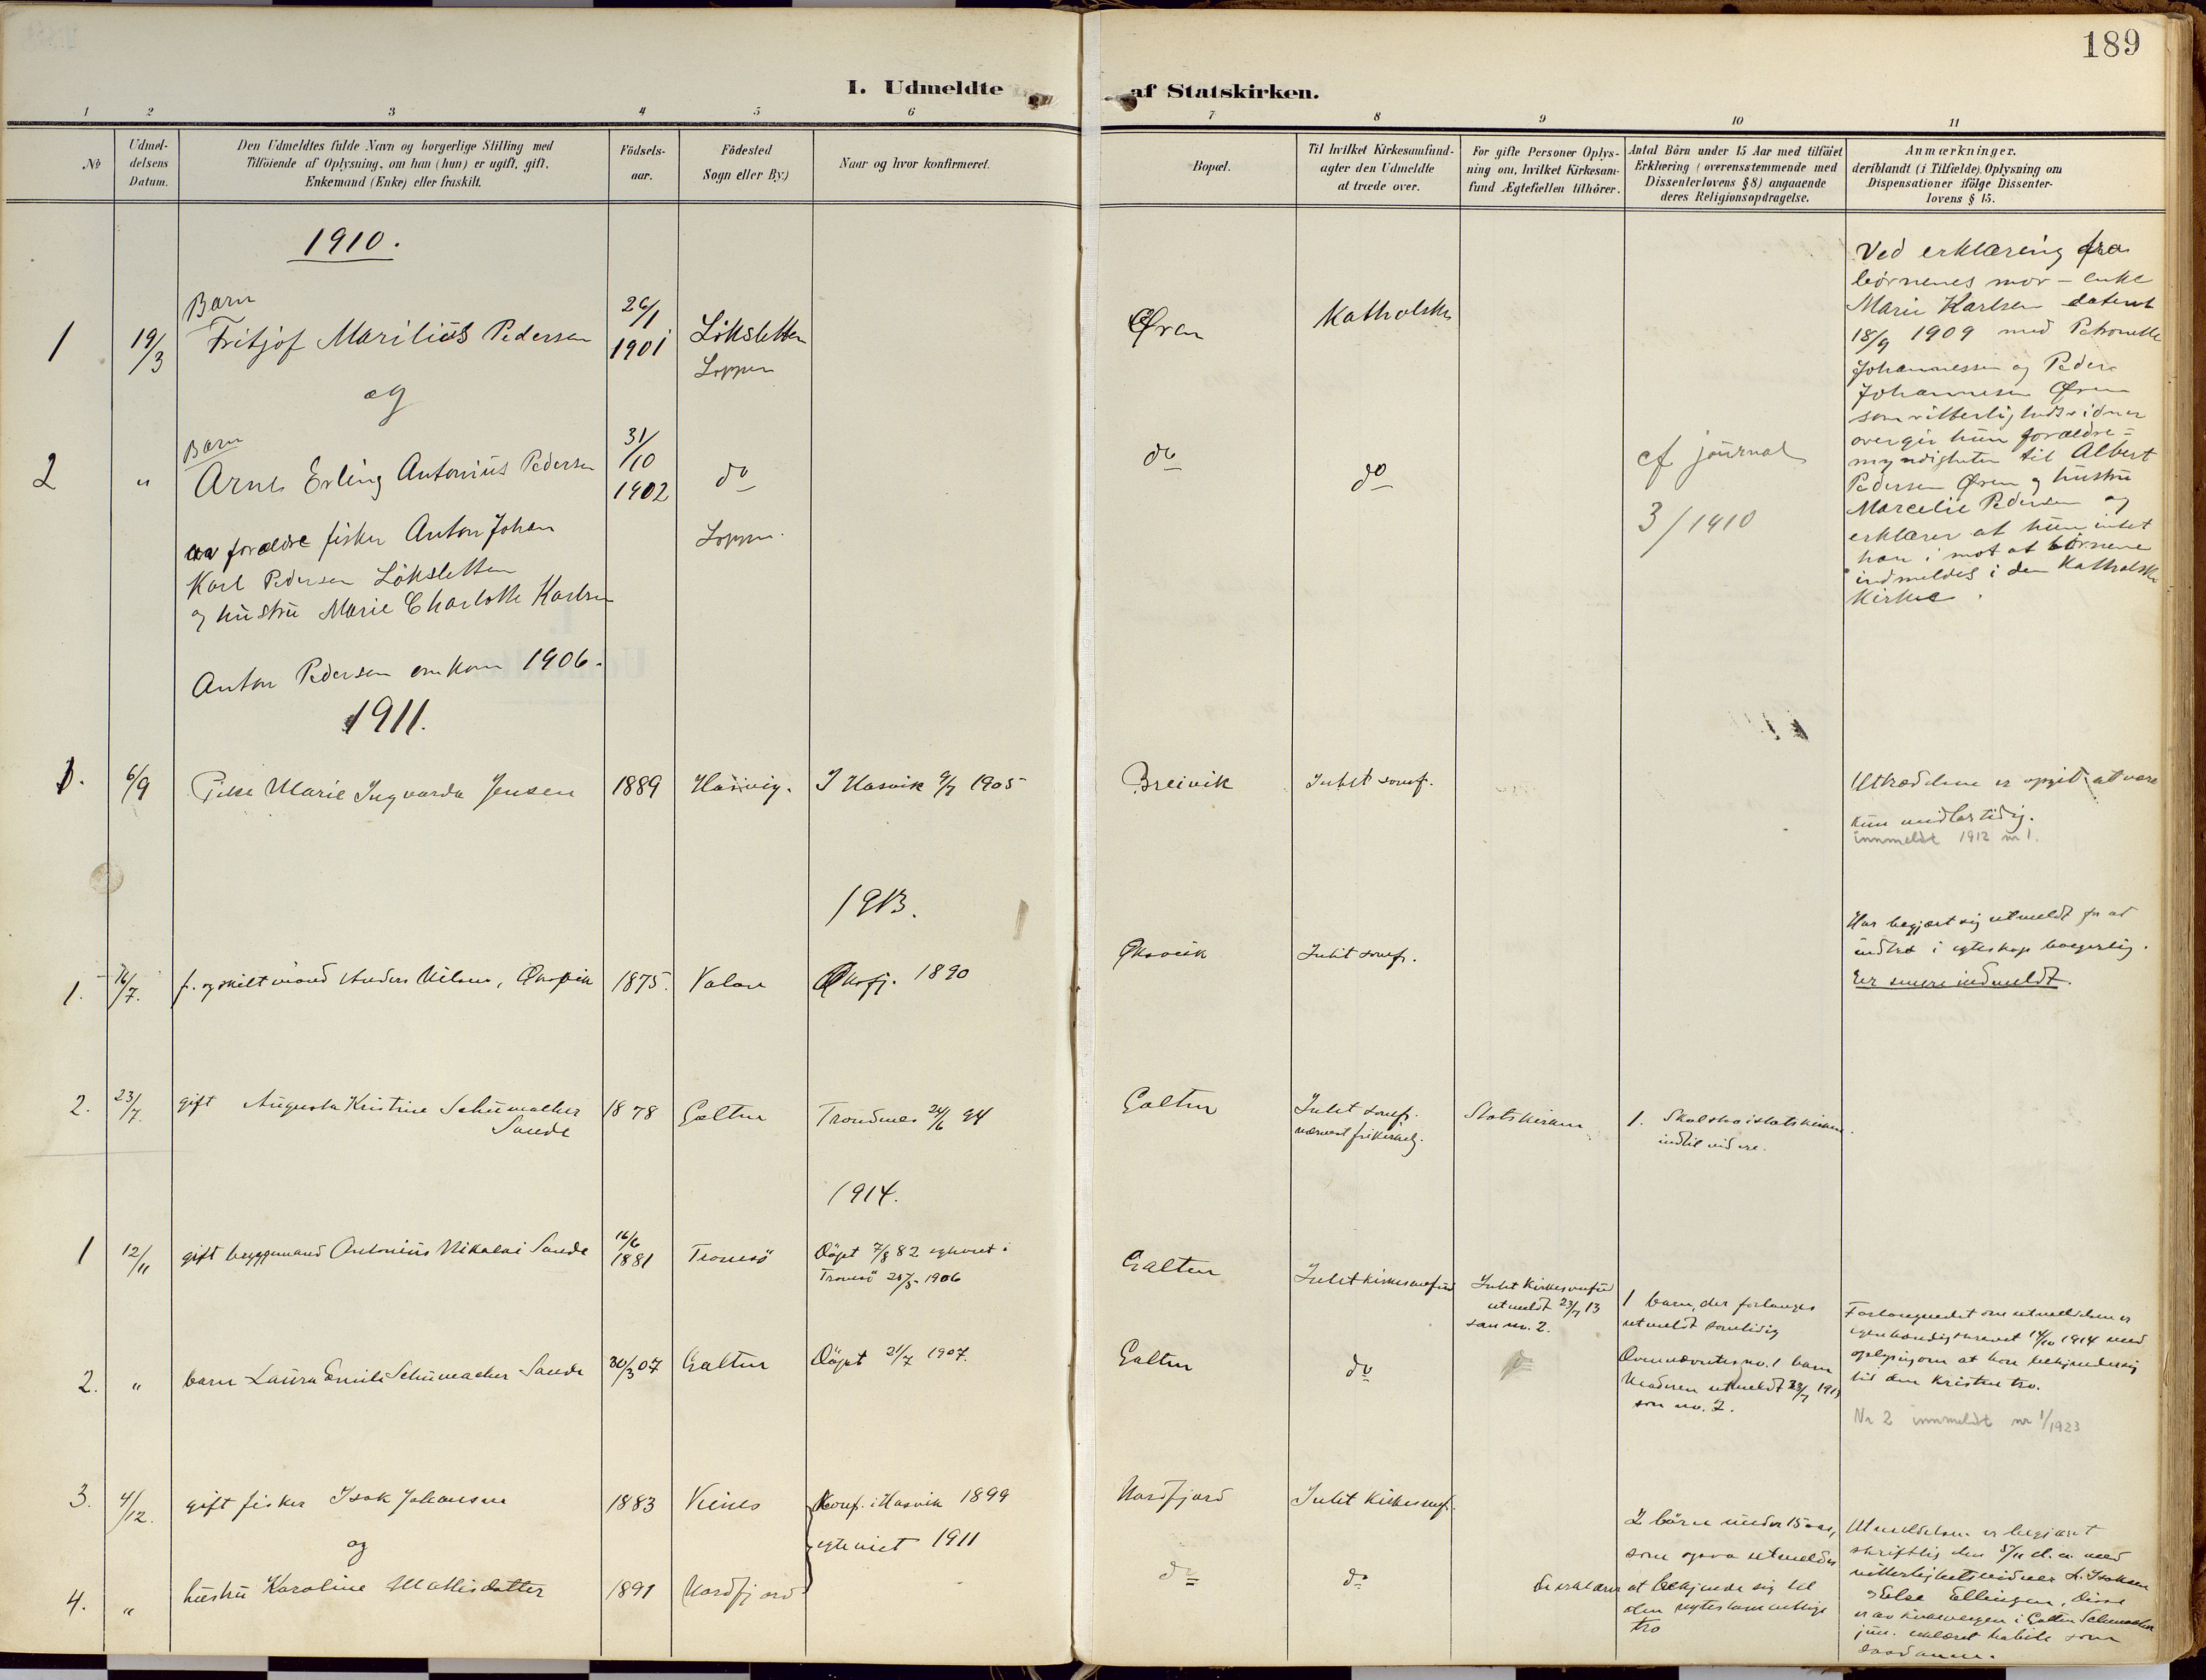 189
I. Udmeldte
af Statskirken.
1 2 3 4 5 6 7 8 9 10 11
No
Udmel-
delsens
Datum.
Den Udmeldtes fulde Navn og borgerlige Stilling med
Tilföiende af Oplysning, om han (hun) er ugift, gift,
Enkemand (Enke) eller fraskilt.
Födsels-
aar.
Födested
Sogn eller By.)
Naar og hvor konfirmeret.
Bopæl.
Til hvilket Kirkesamfund-
agter den Udmeldte
at træde over.
For gifte Personer Oplys-
ning om, hvilket Kirkesam-
fund Ægtefællen tilhörer.
Antal Börn under 15 Aar med tilföiet
Erklæring (overensstemmende med
Dissenterlovens § 8) angaaende
deres Religionsopdragelse.
Anmærkninger,
deriblandt (i Tilfælde) Oplysning om
Dispensationer ifölge Dissenter-
lovens § 15.
1910.
Barn
1 19/3 Fritjof Marilius Pedersen 26/1 1901 Löksletten
Loppen
Øren Katholske
og
Barn
2 " Arne Erling Antonius Pedersen 31/10 1902 do
Loppen.
do do cf journal
3/1910
av forældre fisker Anton Johan
Karl Pedersen Löksletten
og hustru Marie Charlotte Karlsen
Anton Pedersen omkom 1906.
Ved erklæring fra
börnenes mor - enke
Marie Karlsen datert
18/9 1909 med Petronelle
Johannessen og Peder
Johannesen Øren
som vitterlighedsvidner
overgir hun forældre=
myndigheten til Albert
Pedersen Øren og hustru
Marcelie Pedersen og
erklærer at hun intet
har i mot at börnene
indmeldes i den Katholske
Kirke.
1911.
1. 6/9 Marie Ingvarda Jensen 1889 Hasvig. I Hasvik 9/7 1905 Breivik Intet samf.
Utrædelsen er opgit at være
kun midlertidig.
innmeldt 1912 nr 1.
1913.
1. 16/7. f. og skilt mand Anders Nilsen, Øksvik 1875. Valan Øksfj. 1890 Øksvik Intet samf.
Har begjært sig utmeldt for at
indtræ i egteskap borgerlig.
Er senere indmeldt.
2. 23/7. gift Augusta Kristine Schumacher
Sande
1878 Galten Trondenes 24/6 94 Galten Intet samf.
nærmest frikirkelig.
Statskirken
1. Skal staa i statskirken
indtil videre.
1914.
1 12/11 gift byggmand Antonius Nikolai Sande 16/6 1881 Tromsö Döpt 7/8 82 egteviet i
Tromsö 1906
Galten Intet kirkesamfund Intet kirkesamfund
utmeldt 23/7 13
som no. 2.
1 barn, der forlanges
utmeldt samtidig
Forlangendet om utmeldelsen er
egenhændig skrevet 14/10 1914 med
oplysning om at han bekjender sig
til den kristne tro.
2. " barn Laura Emilie Schumacher Sande 30/3 07 Galten Döpt 21/7 1907. Galten do do
Ovennævnte no. 1 barn
Moderen utmeldt 23/7 1913
som no. 2.
Nr 2 innmeldt nr 1/1923
3. 4/12. gift fisker Isak Johansen 1883 Konf. i Hasvik 1899
egteviet 1911
Nordfjord Intet kirkesamf.
og
4. " hustru Karoline Mathisdatter 1891 Nordfjord do do
2 börn under 15 aar,
som ogsaa utmeldes
De erklærer at bekjende sig til
den nytestamentlige
tro
Utmeldelsen er begjæret
skriftlig den 5/11 d.a. med
vitterlighetsvidner L. Isaksen
og Else Ellingsen. Disse
er av kirkevergen i Galten Schumacher
jun. erklæret habile som
saadanne.